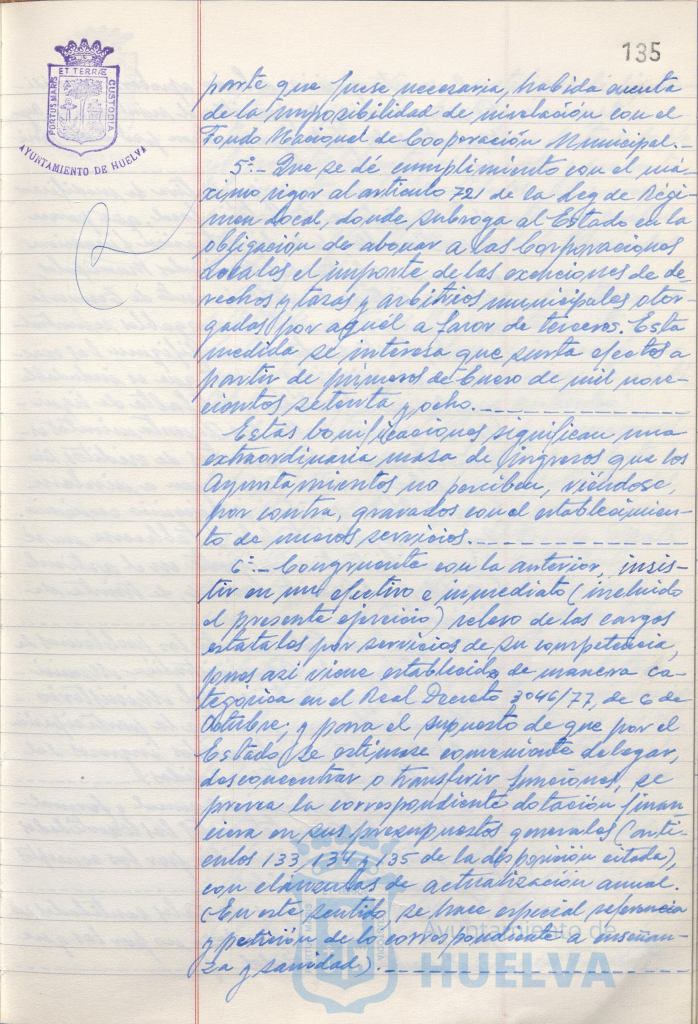 135
ET TERRÆ
PORTUS MARIS
CUSTODIA
AYUNTAMIENTO DE HUELVA
parte que fuese necesaria, habida cuenta
de la imposibilidad de nivelación con el
Fondo Nacional de Cooperación Municipal.-
5º.- Que se dé cumplimiento con el má-
ximo rigor al artículo 721 de la Ley de Régi-
men Local, donde subroga al Estado en la
obligación de abonar a las Corporaciones
Locales el importe de las exenciones de de-
rechos y tasas y arbitrios municipales otor-
gados por aquél a favor de terceros. Esta
medida se interesa que surta efectos a
partir de primeros de Enero de mil nove-
cientos setenta y ocho.
Estas bonificaciones significan una
extraordinaria masa de ingresos que los
Ayuntamientos no perciben, viéndose,
por contra, gravados con el establecimien-
to de nuevos servicios.
6º.- Congruente con la anterior, insis-
tir en un efectivo e inmediato (incluido
el presente ejercicio) relevo de las cargas
estatales por servicios de su competencia,
pues así viene establecido de manera ca-
tegórica en el Real Decreto 3046/77, de 6 de
Octubre; y para el supuesto de que por el
Estado se estimase conveniente delegar,
desconcentrar o transferir funciones, se
prevea la correspondiente dotación finan-
ciera en sus presupuestos generales (artí-
culos 133, 134 y 135 de la disposición citada),
con cláusulas de actualización anual.
(En este sentido se hace especial referencia
y petición de lo correspondiente a enseñan-
za y sanidad).
Ayuntamiento de
HUELVA